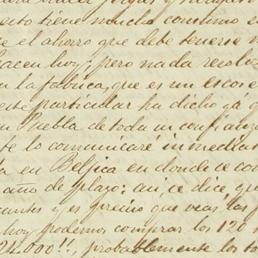 esto tiene mucho consumo
e el ahorro que debe tenerse
hacen hoy; pero nada
en la fabrica, que es un
este particular ha dicho ya
en Puebla de toda mi confianza
te lo comunicaré inmediata
ta en Belgica en donde se co
año de plazo: asi, se dice que
cuentos y es preciso que veas las
hoy podemos comprar los 120
24.000!!, probablemente los to